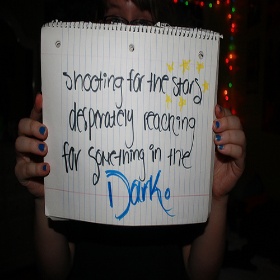 shooting for the stars
desprately reaching
for something in the
Dark.